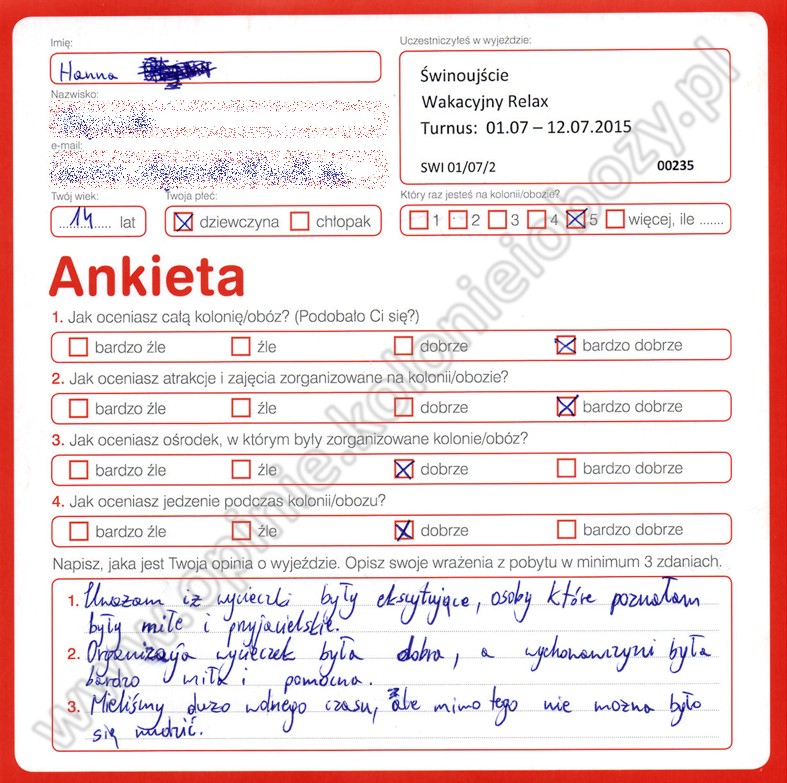 Imię:
Hanna
Nazwisko:
e-mail:
Twój wiek:
14 lat
Twoja płeć:
dziewczyna chłopak
Uczestniczyłeś w wyjeździe:
Świnoujście
Wakacyjny Relax
Turnus: 01.07 – 12.07.2015
SWI 01/07/2 00235
Który raz jesteś na kolonii/obozie?
1 2 3 4 5 więcej, ile .......
Ankieta
1. Jak oceniasz całą kolonię/obóz? (Podobało Ci się?)
bardzo źle źle dobrze bardzo dobrze
2. Jak oceniasz atrakcje i zajęcia zorganizowane na kolonii/obozie?
bardzo źle źle dobrze bardzo dobrze
3. Jak oceniasz ośrodek, w którym były zorganizowane kolonie/obóz?
bardzo źle źle dobrze bardzo dobrze
4. Jak oceniasz jedzenie podczas kolonii/obozu?
bardzo źle źle dobrze bardzo dobrze
Napisz, jaka jest Twoja opinia o wyjeździe. Opisz swoje wrażenia z pobytu w minimum 3 zdaniach.
1. Uważam iż wycieczki były ekscytujące, osoby które poznałam
były miłe i przyjacielskie.
2. Organizacja wycieczek była dobra, a wychowawczyni była
bardzo miła i pomocna.
3. Mieliśmy dużo wolnego czasu, ale mimo tego nie można było
się nudzić.
www.opinie.kolonieiobozy.pl